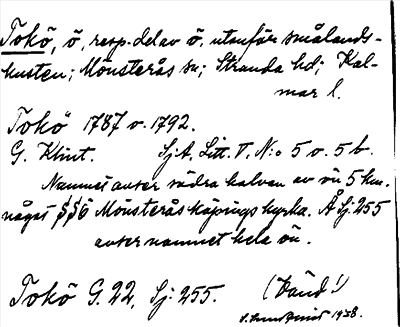 Tokö, ö, resp. del av ö, utanför smålands-
kusten; Mönsterås sn; Stranda hd; Kal-
mar l.
Tokö 1787 o. 1792.
G. Klint. Sj.A. Litt. V, N:o 5 o. 5 b.
Namnet avser södra halvan av ön 5 km.
något SSÖ Mönsterås köpings kyrka. Å Sj. 255
avser namnet hela ön.
Tokö G. 22, Sj. 255. (Vänd!)
1938.